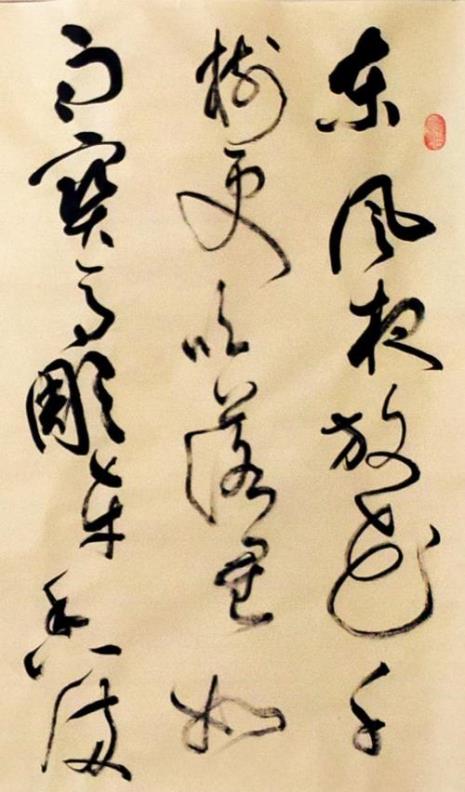 东风夜放花千
树更吹落星如
雨宝马彫车香满